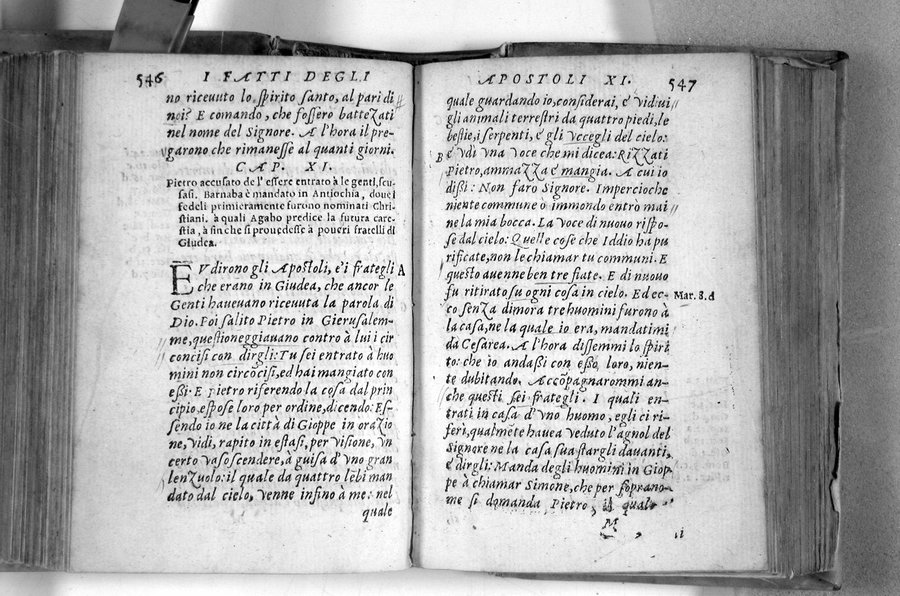 546 I FATTI DEGLI
no riceuuto lo spirito santo, al pari di
noi? E comandò, che fossero battezati
nel nome del Signore. A l'hora il pre-
garono che rimanesse al quanti giorni.
CAP. XI.
Pietro accusato de l'essere entrato à le genti, scu-
sasi. Barnaba è mandato in Antiochia, doue i
fedeli primieramente furono nominati Chri-
stiani. à quali Agabo predice la futura care-
stia, à fin che si prouedesse à poueri fratelli di
Giudea.
EVdirono gli Apostoli, e'i frategli A
che erano in Giudea, che ancor le
Genti haueuano riceuuta la parola di
Dio. Poi salito Pietro in Gierusalem-
me, questioneggiauano contrò à lui i cir
concisi con dirgli: Tu sei entrato à huo
mini non circōcisi, ed hai mangiato con
essi. E Pietro riferendo la cosa dal prin
cipio, espose loro per ordine, dicendo: Es-
sendo io ne la città di Gioppe in orazio
ne, vidi, rapito in estasi, per visione, vn
certo vaso scendere, à guisa d'vno gran
lenzuolo: il quale da quattro lēbi man
dato dal cielo, venne infino à me: nel
quale
APOSTOLI XI. 547
quale guardando io, considerai, e' vidi ui
gli animali terrestri da quattro piedi, le
bestie, i serpenti, e' gli vccegli del cielo:
B e' vdi vna voce che mi dicea: Rizzati
Pietro, ammazza e' mangia. A cui io
dissi: Non farò Signore. Impercioche
niente commune ò immondo entrò mai
ne la mia bocca. La voce di nuouo rispo-
se dal cielo: Quelle cose che Iddio ha pu
rificate, non le chiamar tu communi. E
questo auenne ben tre fiate. E di nuouo
fu ritirato su ogni cosa in cielo. Ed ec-
co senza dimora tre huomini furono à Mar. 8. d
la casa, ne la quale io era, mandatimi
da Cesarea. A l'hora dissemmi lo spiri
to: che io andassi con esso loro, nien-
te dubitando. Accōpagnarommi an-
che questi sei frategli. I quali en-
trati in casa d'vno huomo, egli ci ri-
ferì, qualmēte hauea veduto l'agnol del
Signore ne la casa sua stargli dauanti,
e' dirgli: Manda degli huomini in Giop
pe à chiamar Simone, che per soprano-
me si domanda Pietro, il quale
M ii